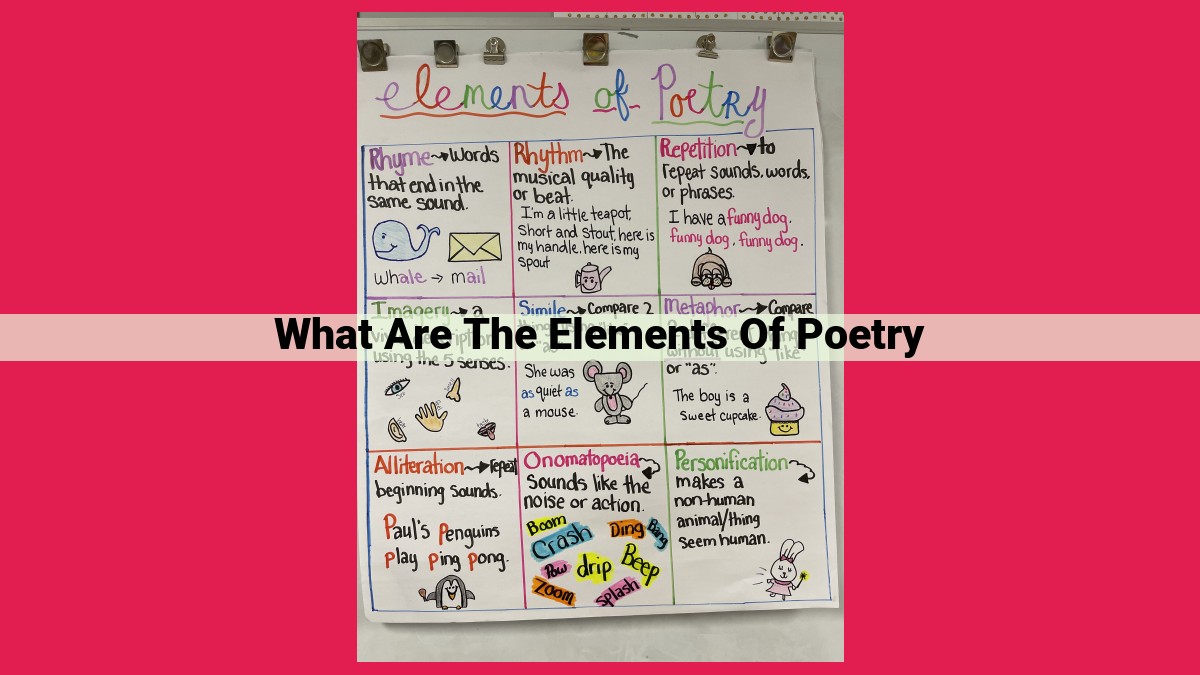 elements of Poetry
Rhyme → Words
that end in the
same sound.
whale → mail
Rhythm → The
musical quality
or beat.
I'm a little teapot,
Short and Stout, here is
my handle, here is my
spout
Repetition → to
repeat sounds, words,
or phrases.
I have a funny dog,
funny dog, funny dog.
What Are The Elements Of Poetry
Imagery → a
using the 5 senses.
See
Simile → Compare 2
"as"
She was
as quiet as
a mouse.
Metaphor → Compare
without using "like"
or "as".
The boy is a
sweet cupcake.
Alliteration → repeat
beginning sounds.
Paul's Penguins
Play Ping Pong.
Onomatopoeia
Sounds like the
noise or action.
Boom
Crash
Ding
Bang
Pow
drip
Beep
Zoom
Splash
Personification
makes a
non-human
animal/thing
seem human.